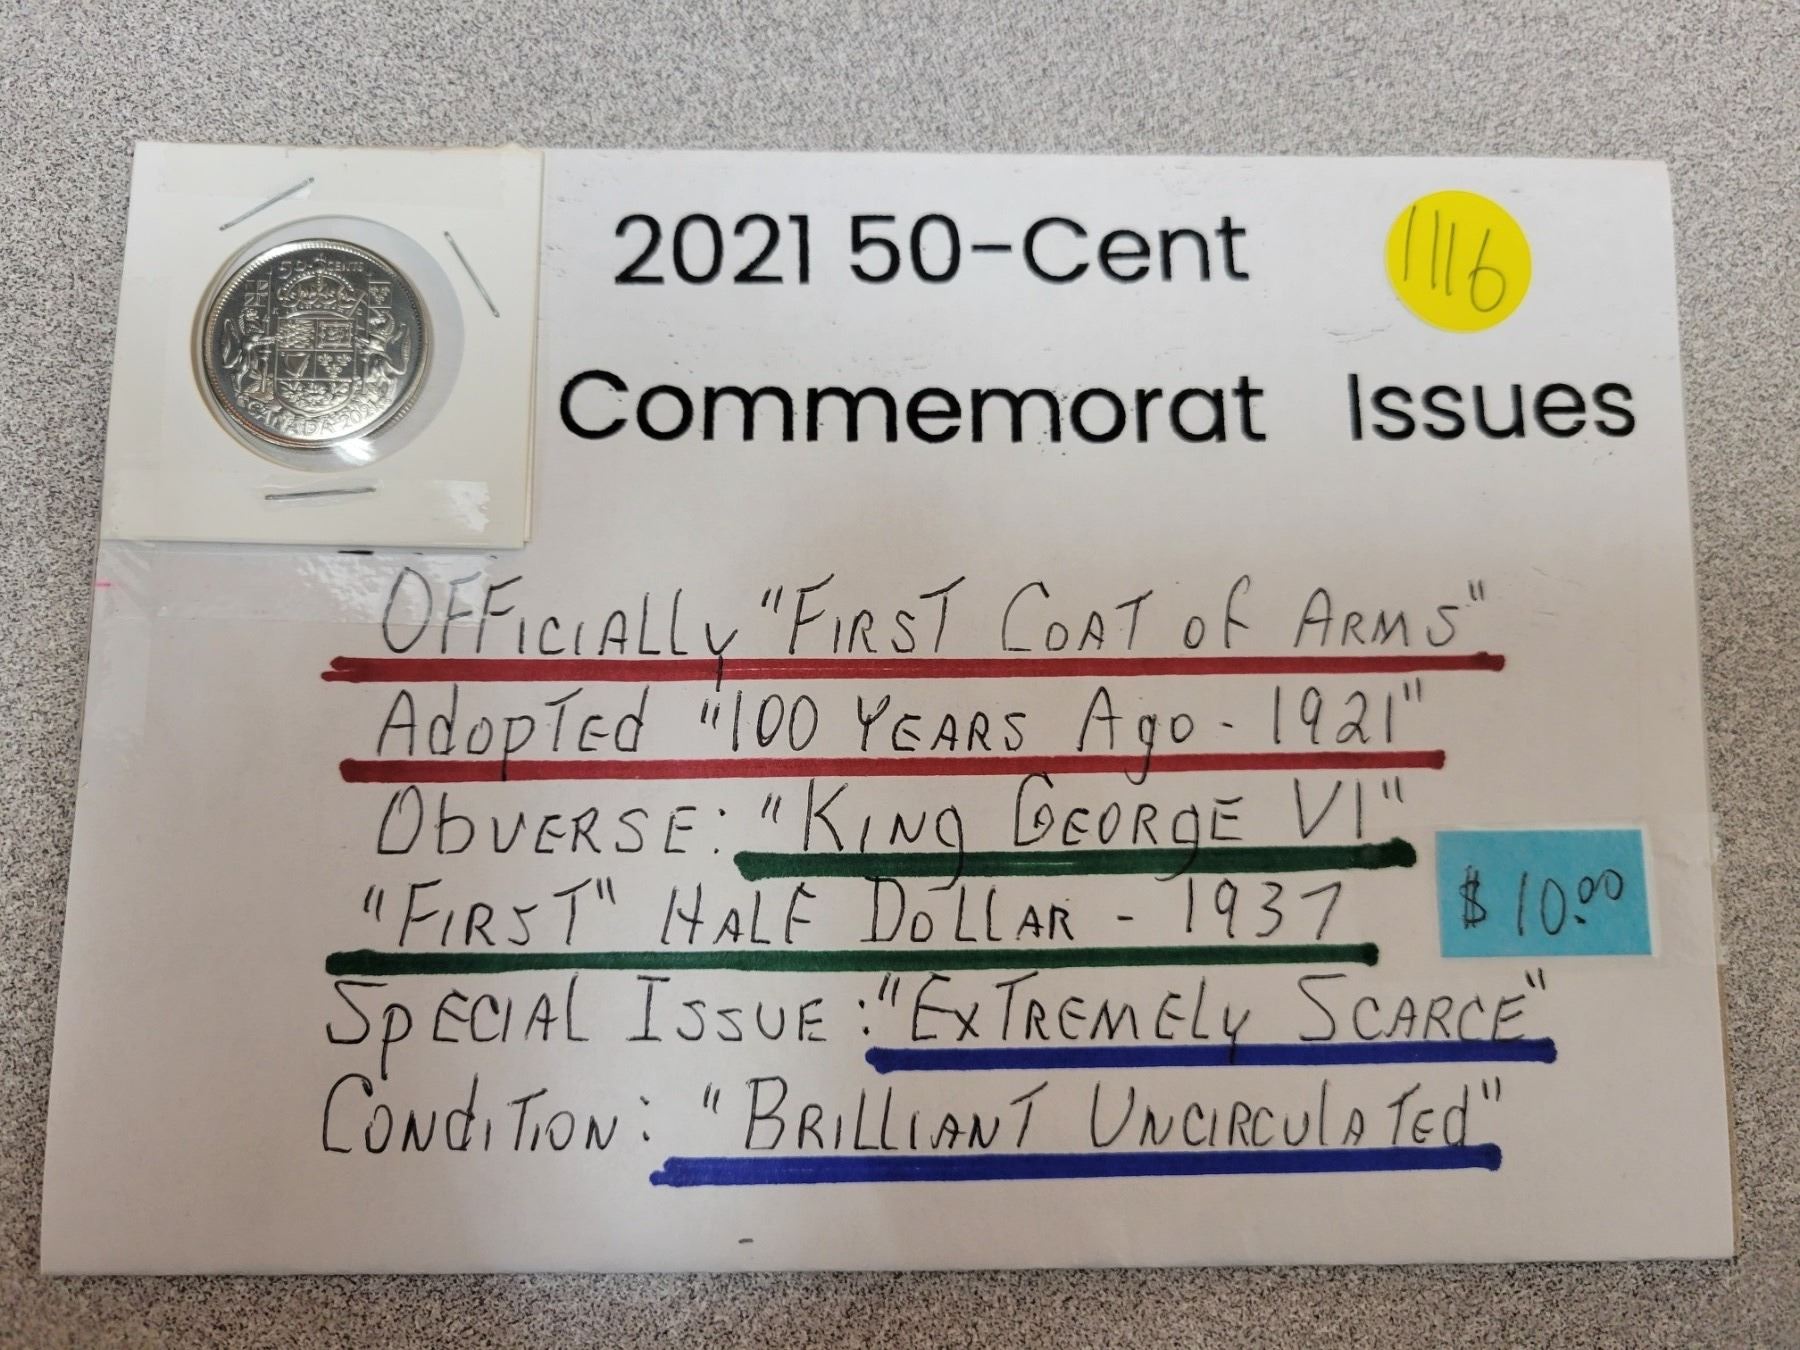 50 CENTS
CANADA 2021
2021 50-Cent
1116
Commemorat Issues
OFFICIALLY "FIRST COAT OF ARMS"
AdopTEd "100 YEARS Ago - 1921"
ObVERSE: "KING GEORGE VI"
"FIRST" HALF DOLLAR - 1937
$10.00
SpECIAL ISSUE: "ExTREMELy SCARCE"
CONdITION: "BRILLIANT UNCIRCULATEd"